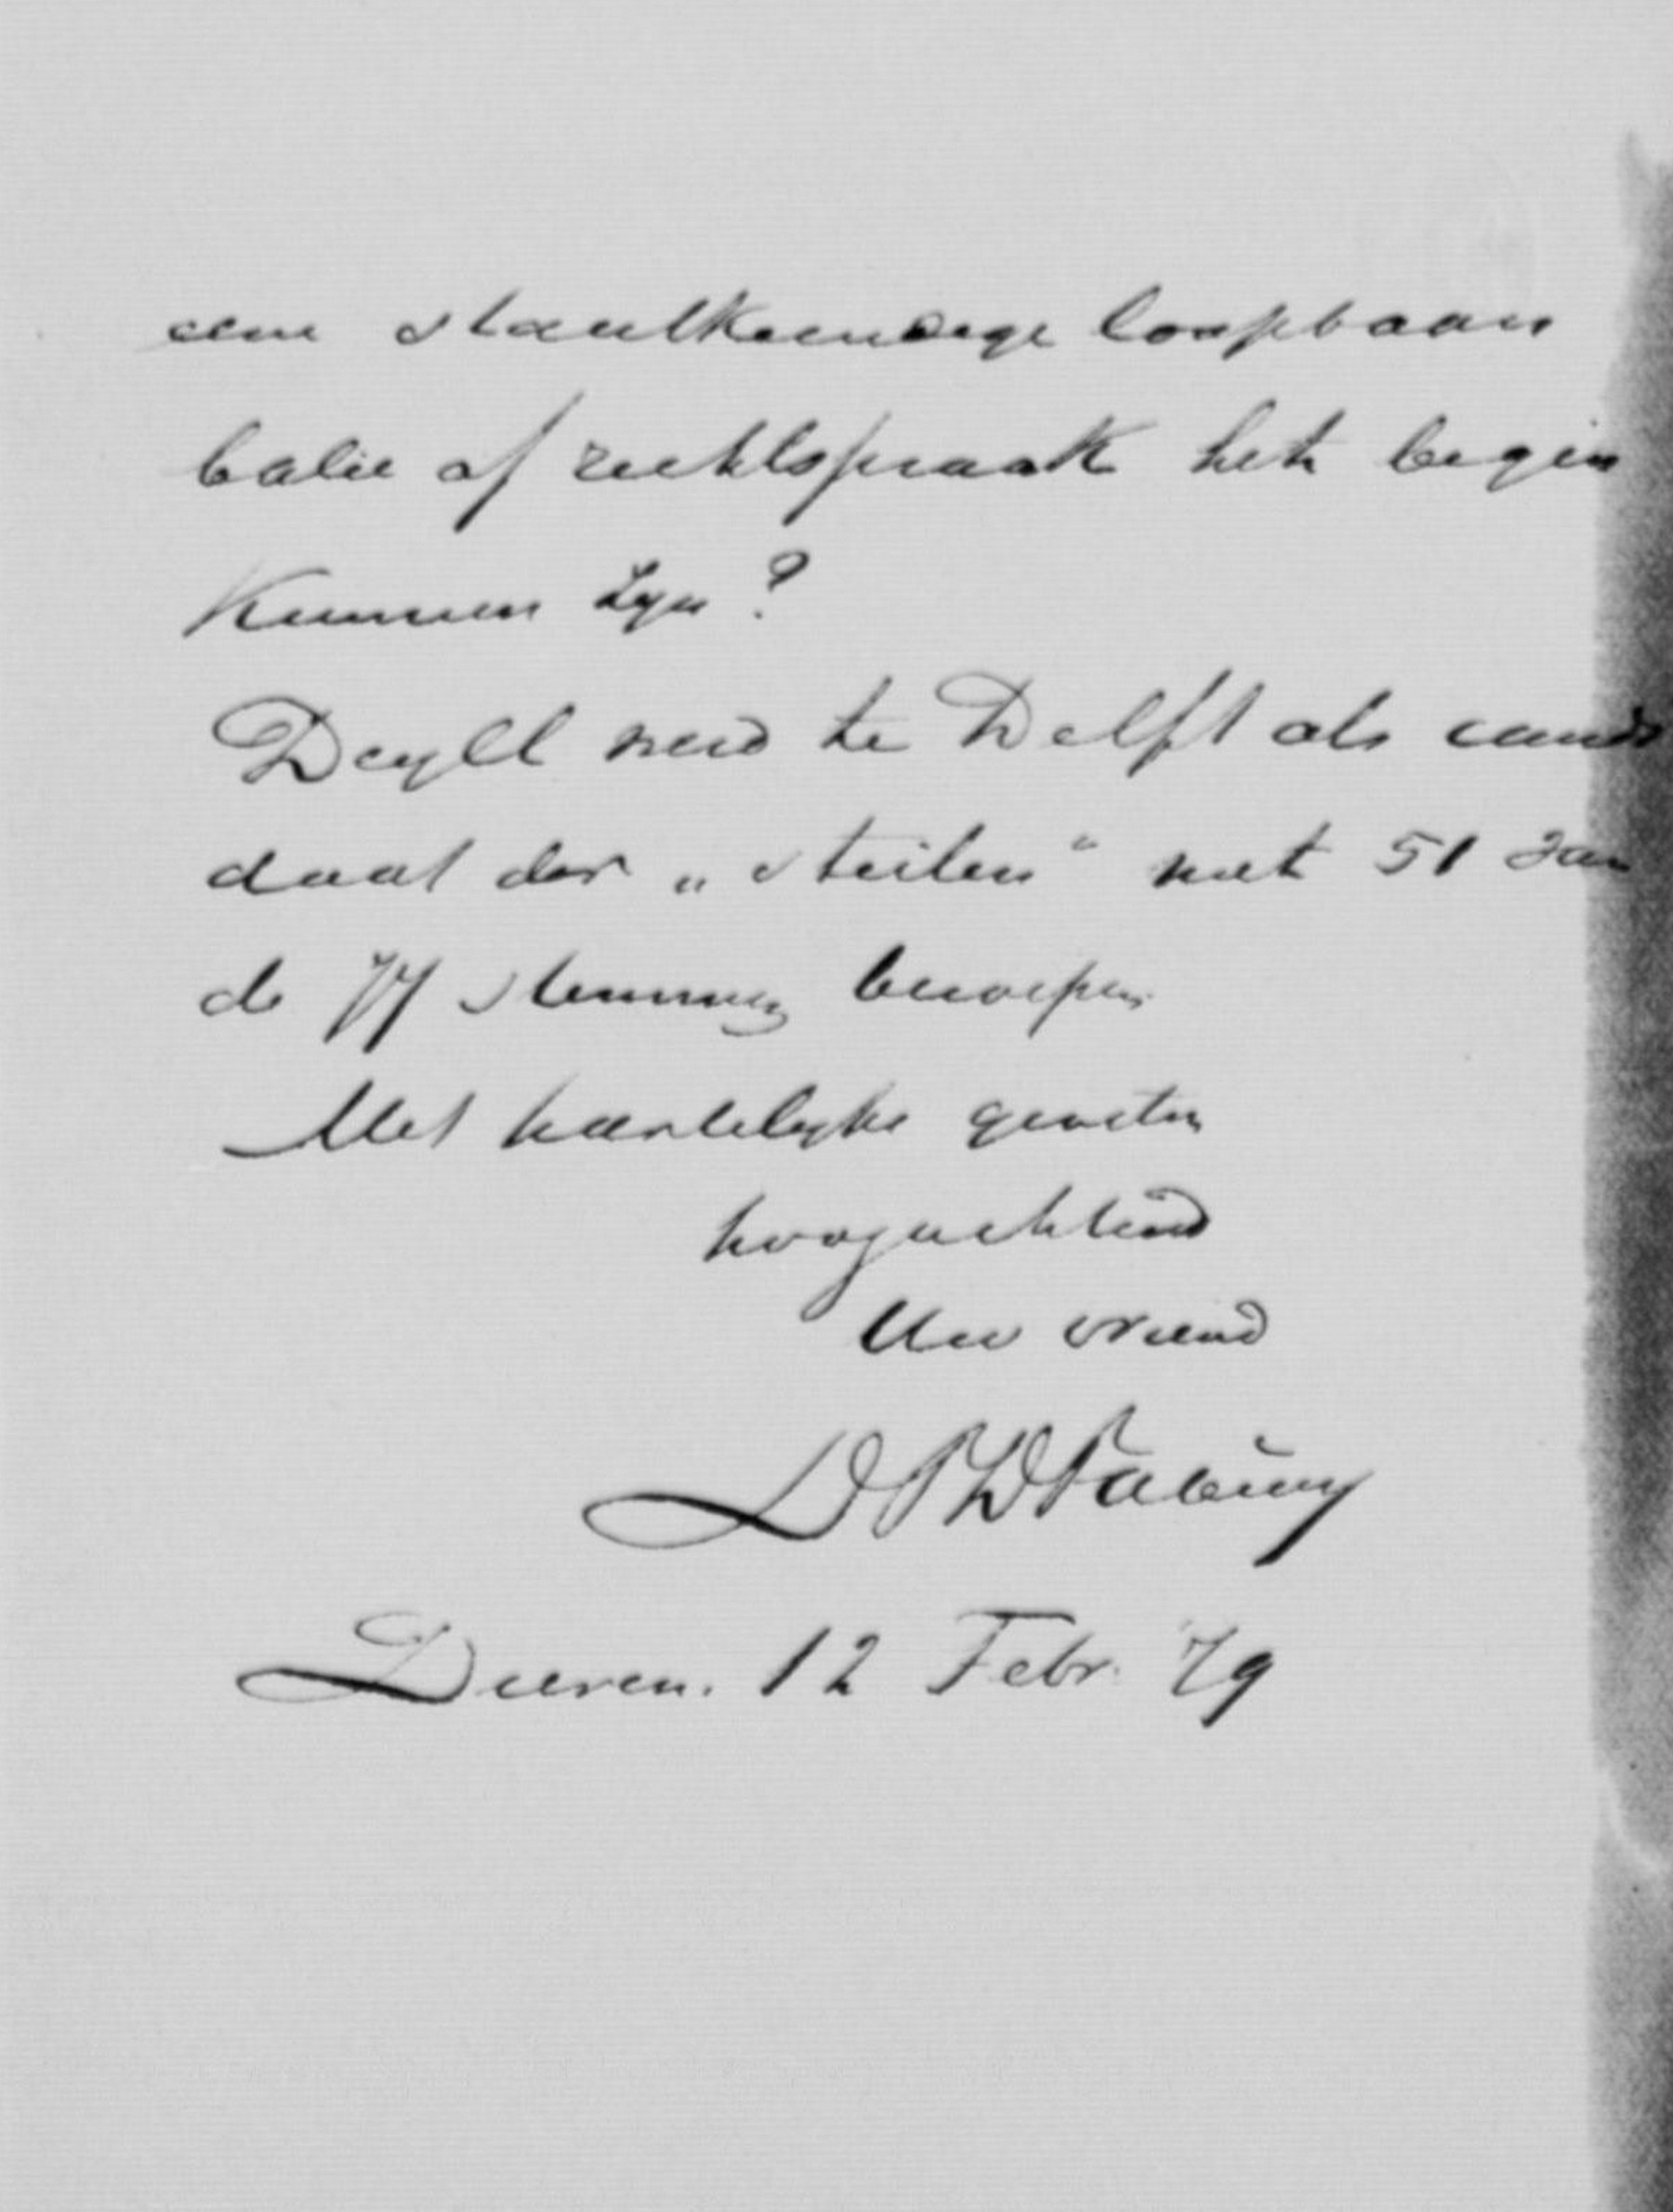 eene staatkundige loopbaan
balie of rechtspraak het begin
kunnen zyn?
Deyll werd te Delft als candi
daat der „steilen" met 51 van
de 77 stemmen beroepen.
Met hartelyke groeten
hoogachtend
Uw vriend
DPDFabius
Dieren. 12 Febr. 79